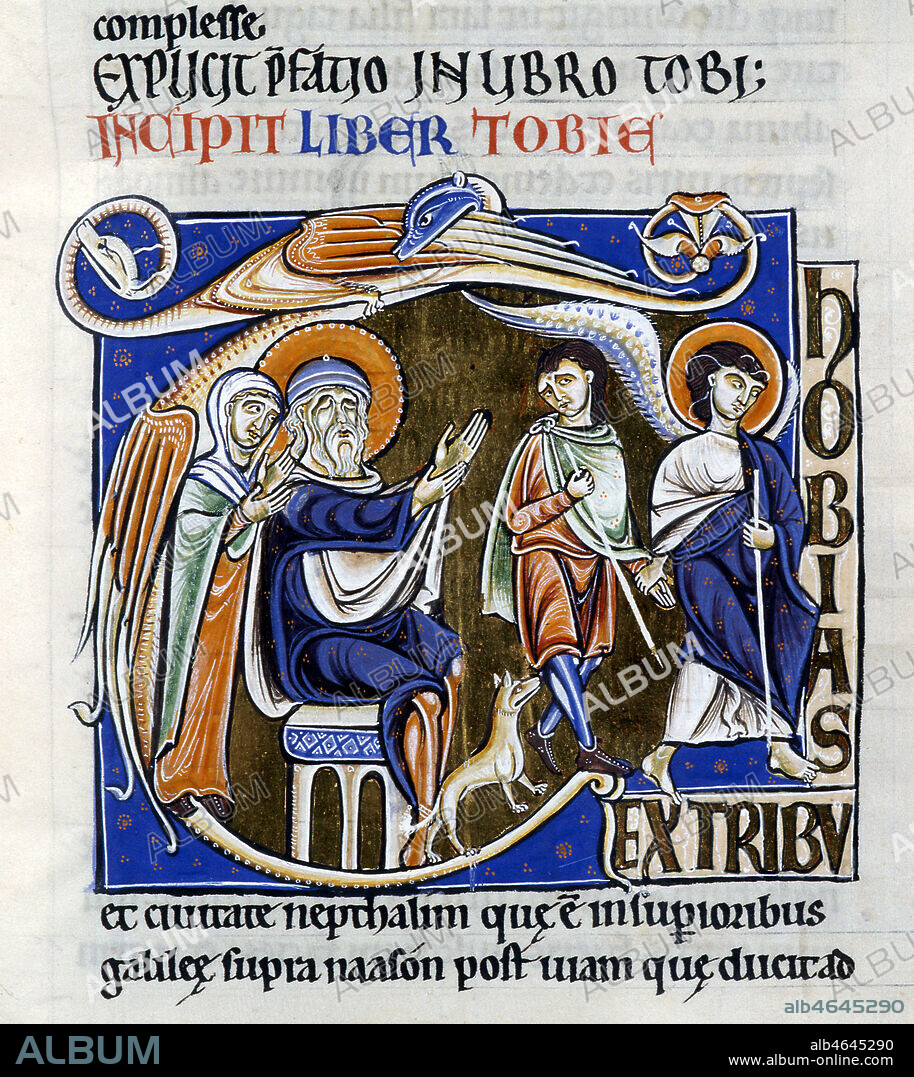 complesse
EXPLICIT P̄FATIO IN LIBRO TOBI;
INCIPIT LIBER TOBIE
hOBIAS
EX TRIBV
et ciuitate nepthalim quę ē in supioribus
galileę supra naason post uiam quę ducit ad
ALBUM
alb4645290
ALBUM
alb4645290
www.album-online.com